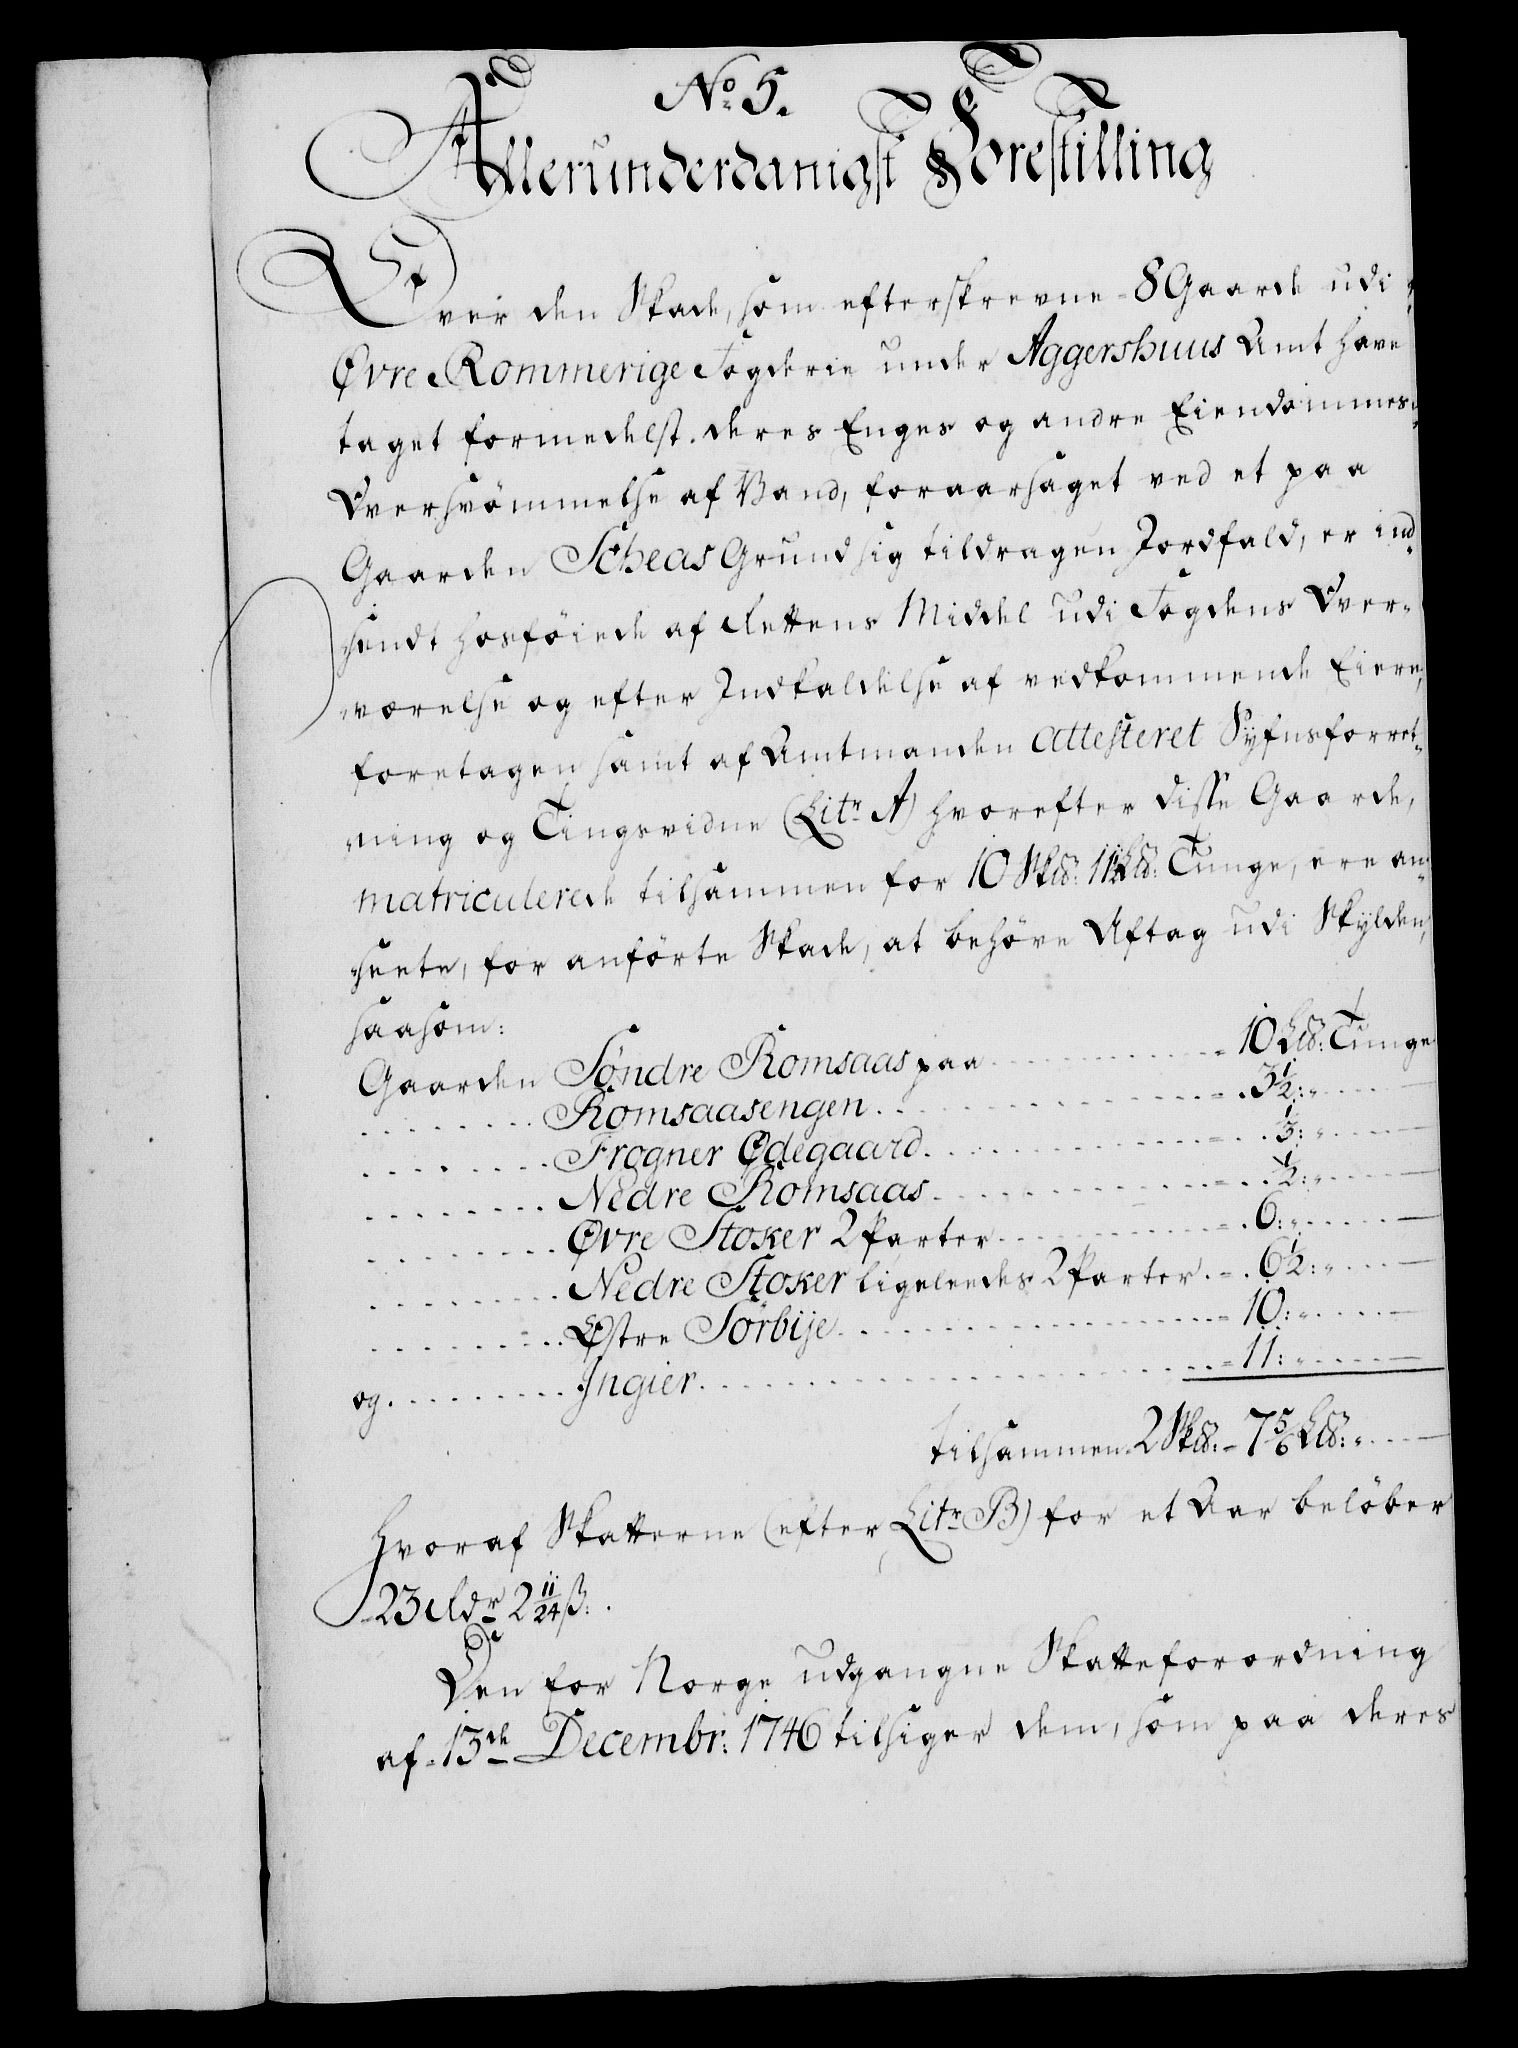 No. 5.
Allerunderdanigst Forestilling
Over den Skade, som efterskrevne 8 Gaarde udi
Øvre Rommerige Fogderie under Aggershuus Amt have
taget formedelst deres Enges og andre Eiendommes
Oversvömmelse af Vand, foraarsaget ved et paa
Gaarden Scheas Grund sig tildragen Jordfald, er ind-
sendt hosföiede af Rettens Middel udi Fogdens Over-
værelse og efter Indkaldelse af vedkommende Eiere,
foretagen samt af Amtmanden attesteret Syfnsforret-
ning og Tingsvidne (Litr A) hvorefter disse Gaarde,
matriculerede tilsammen for 10 Sk℔: L℔: Tunge, ere an-
seete, for anförte Skade, at behöve Aftag udi Skylden,
saasom:
Gaarden Søndre Romsaas paa - 10 L℔: Tunge
Romsaasengen - 3½: "
Frogner Ødegaard - ⅓: "
Nedre Romsaas - ½: "
Øvre Stoker 2 Parter - 6: "
Nedre Stoker ligeleedes 2 Parter - 6½: "
Østre Sørbije - 10: "
og Ingier - 11: "
tilsammen 2 Sk℔: - 7⅚ L℔: "
hvoraf Skatterne (efter Litr B) for et Aar belöber
23 Rdr 2 11/24 ß:.
Den for Norge udgangne Skatteforordning
af 13de Decembr: 1746 tilsiger dem, som paa deres